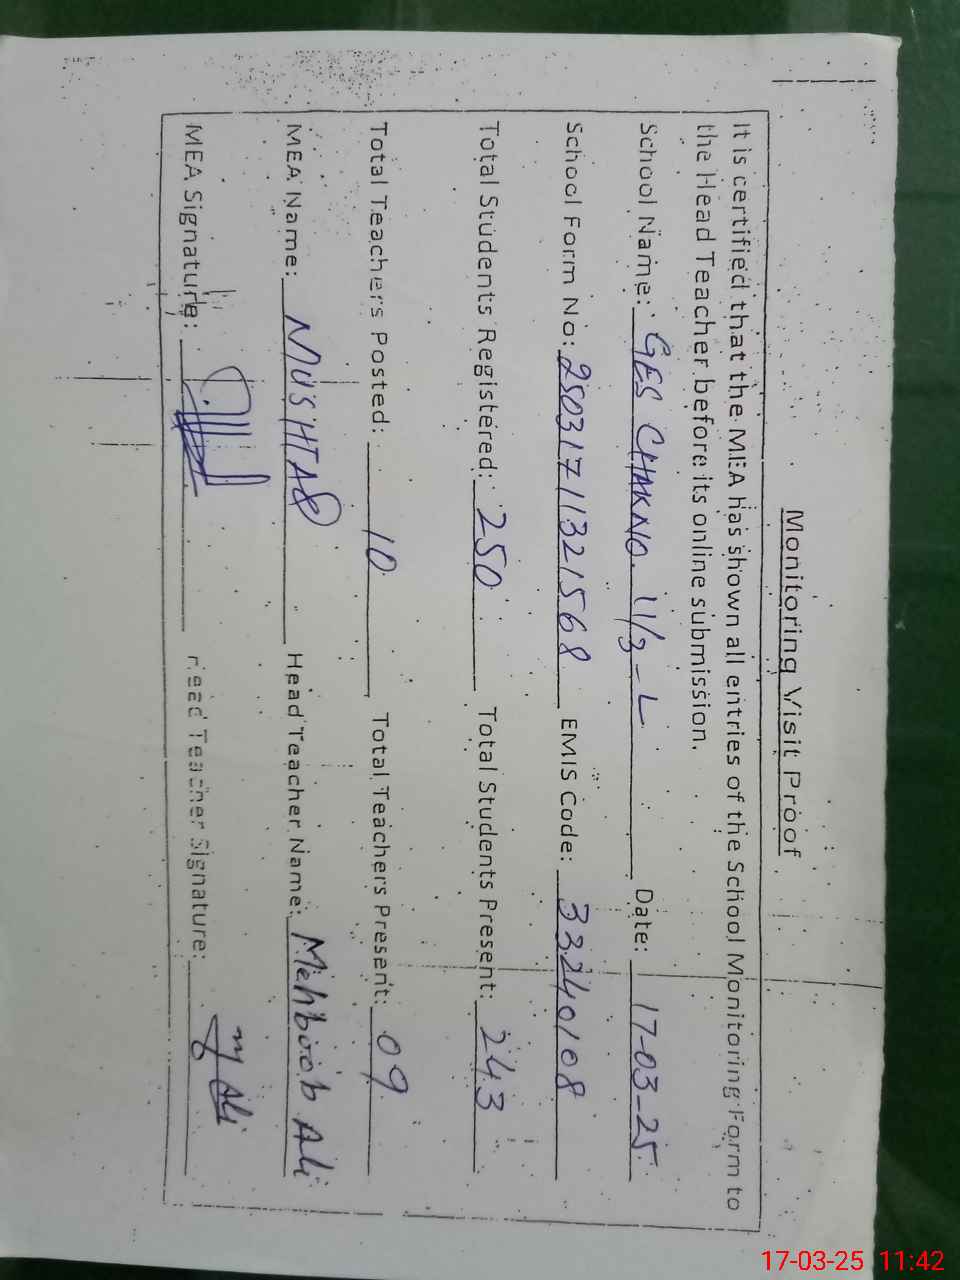 Monitoring Visit Proof
It is certified that the MEA has shown all entries of the School Monitoring Form to
the Head Teacher before its online submission.
School Name: GES CHAK NO. 11/3-L Date: 17-03-25
School Form No: 25031711321568 EMIS Code: 33240108
Total Students Registered: 250 Total Students Present: 243
Total Teachers Posted: 10 Total Teachers Present: 09
MEA Name: MUSHTAQ Head Teacher Name: Mehboob Ali
MEA Signature: Head Teacher Signature: M Ali
17-03-25 11:42